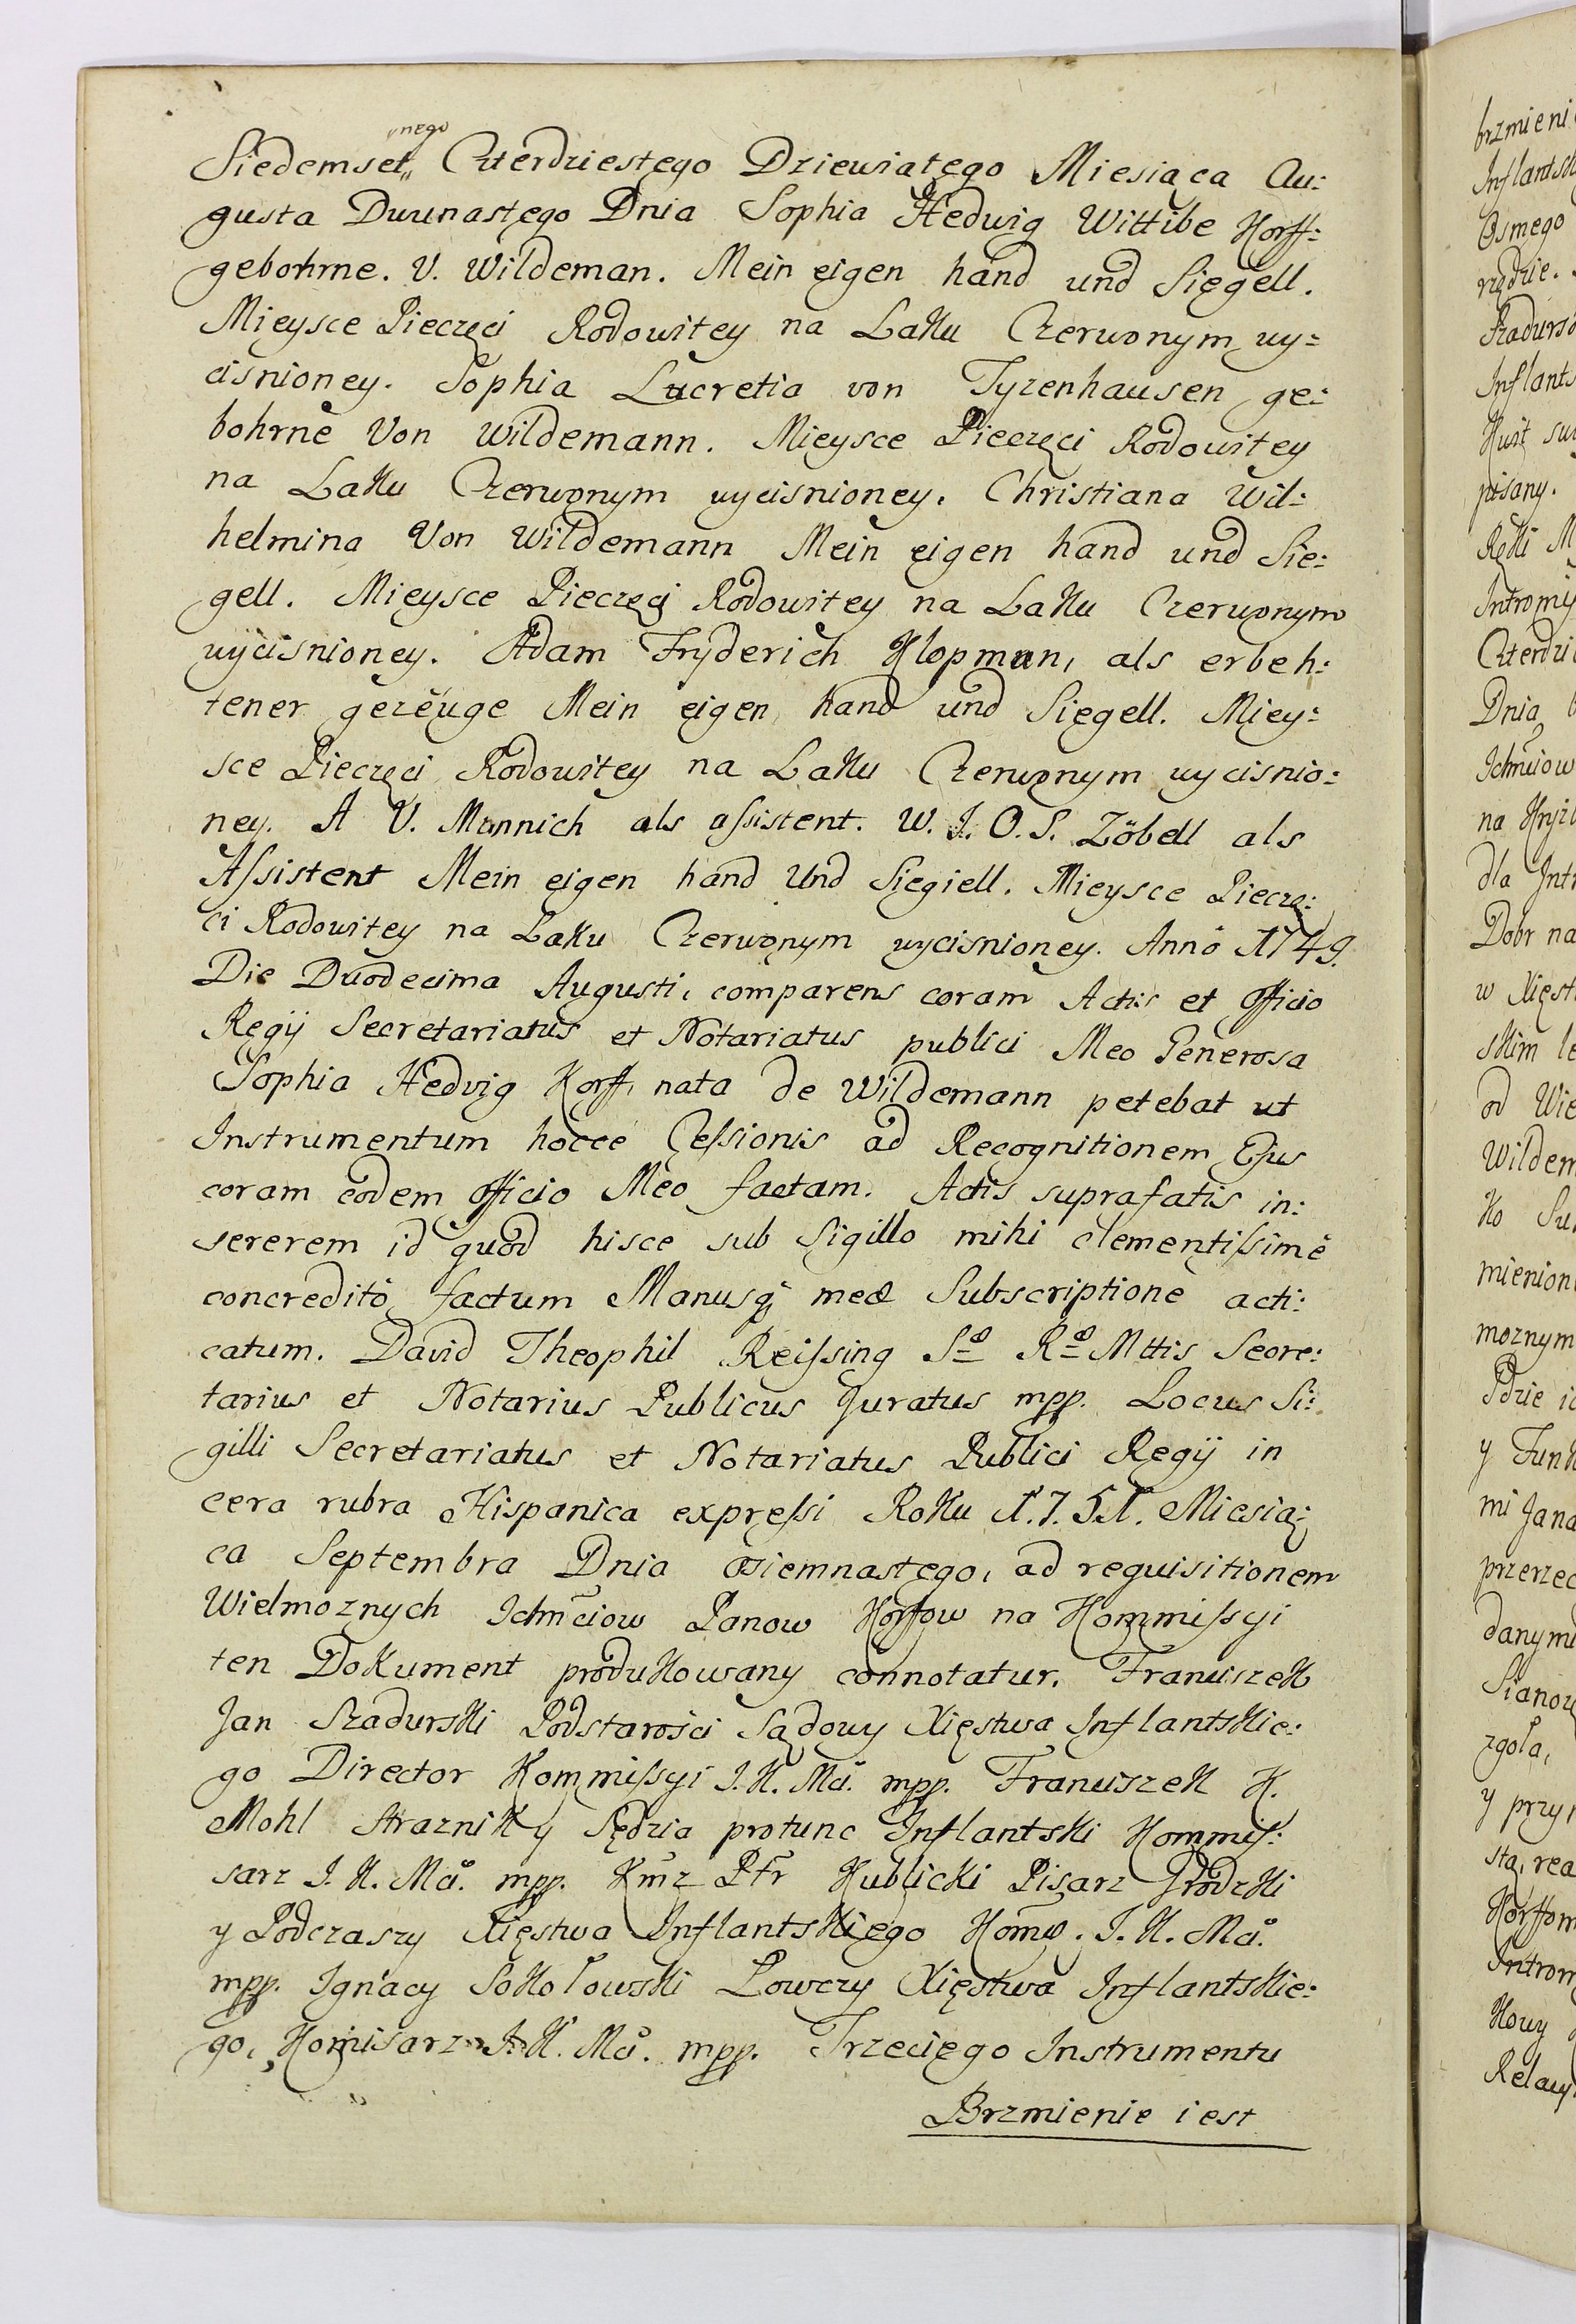 Siedemset„nego„ Czterdziestego Dziewiątego Miesiąca Au:
gusta Dwunastego Dnia Sophia Hedwig Wittibe Korff:
gebohrne. V. Wildeman. Mein eigen hand und Siegell.
Mieysce Pieczęci Rodowitey na Laku Czerwonym wy=
cisnioney. Sophia Lucretia von Tyzenhausen ge:
bohrne Von Wildemann. Mieysce Pieczęci Rodowitey
na Laku Czerwonym wycisnioney. Christiana Wil:
helmina Von Wildemann Mein eigen hand und Sie:
gell. Mieysce Pieczęci Rodowitey na Laku Czerwonym
wycisnioney. Adam Fryderich Klopman, als erbeh:
tener gezeuge Mein eigen hand und Siegell. Miey:
sce Pieczęci Rodowitey na Laku Czerwonym wycisnio:
ney. A V. Mannich als assistent. W. J. O. S. Zöbell als
Assistent Mein eigen hand Und Siegiell. Mieysce Pieczę:
ci Rodowitey na Laku Czerwonym wycisnioney. Anno 1749.
Die Duodecima Augusti, comparens coram Actis et Officio
Regij Secretariatus et Notariatus publici Meo Generosa
Sophia Hedvig Korff, nata de Wildemann petebat ut
Instrumentum hocce Cessionis ad Recognitionem Ejus
coram eodem Officio Meo factam. Actis suprafatis in:
sererem id quod hisce sub Sigillo mihi clementissimè
concreditò factum Manusq; meæ Subscriptione acti:
catum. David Theophil Reissing S° R° Mttis Secre:
tarius et Notarius Publicus Juratus mpp. Locus Si:
gilli Secretariatus et Notariatus Publici Regij in
cera rubra Hispanica expressi Roku 1.7.51. Miesią:
ca Septembra Dnia osiemnastego, ad requisitionem
Wielmoznych Ichmciow Panow Korfow na Kommissyi
ten Dokument produkowany connotatur. Franciszek
Jan Szadurski Podstarości Sądowy Xięstwa Inflantskie:
go Director Kommissyi J. K. Mći. mpp. Franciszek K.
Mohl Straznik y Sędzia protunc Inflantski Kommis:
sarz J. K. Mći. mpp. Kmz Ptr Kublicki Pisarz Grodzki
y Podczaszy Xięstwa Inflantskiego J. K. Mći.
mpp. Ignacy Sokołowski Łowczy Xięstwa Inflantskie:
go, Komisarz J. K. Mći. mpp. Trzeciego Instrumentu
Brzmienie iest
brzmieni
Inflantsk
Osmego
rzędzie.
Szadurs
Inflants
pisany.
Ręki M
Intromi
Czterdzi
Dnia
Ichmciow
dla Int
Dobr na
w Xięst
skim le
od Wie
Wildem
ko Su
mienion
moznym
Gdzie i
y Funk
mi Jana
przerzec
danymi
zgoła,
y przy
sta, rea
Korffom
Introm
Relacy